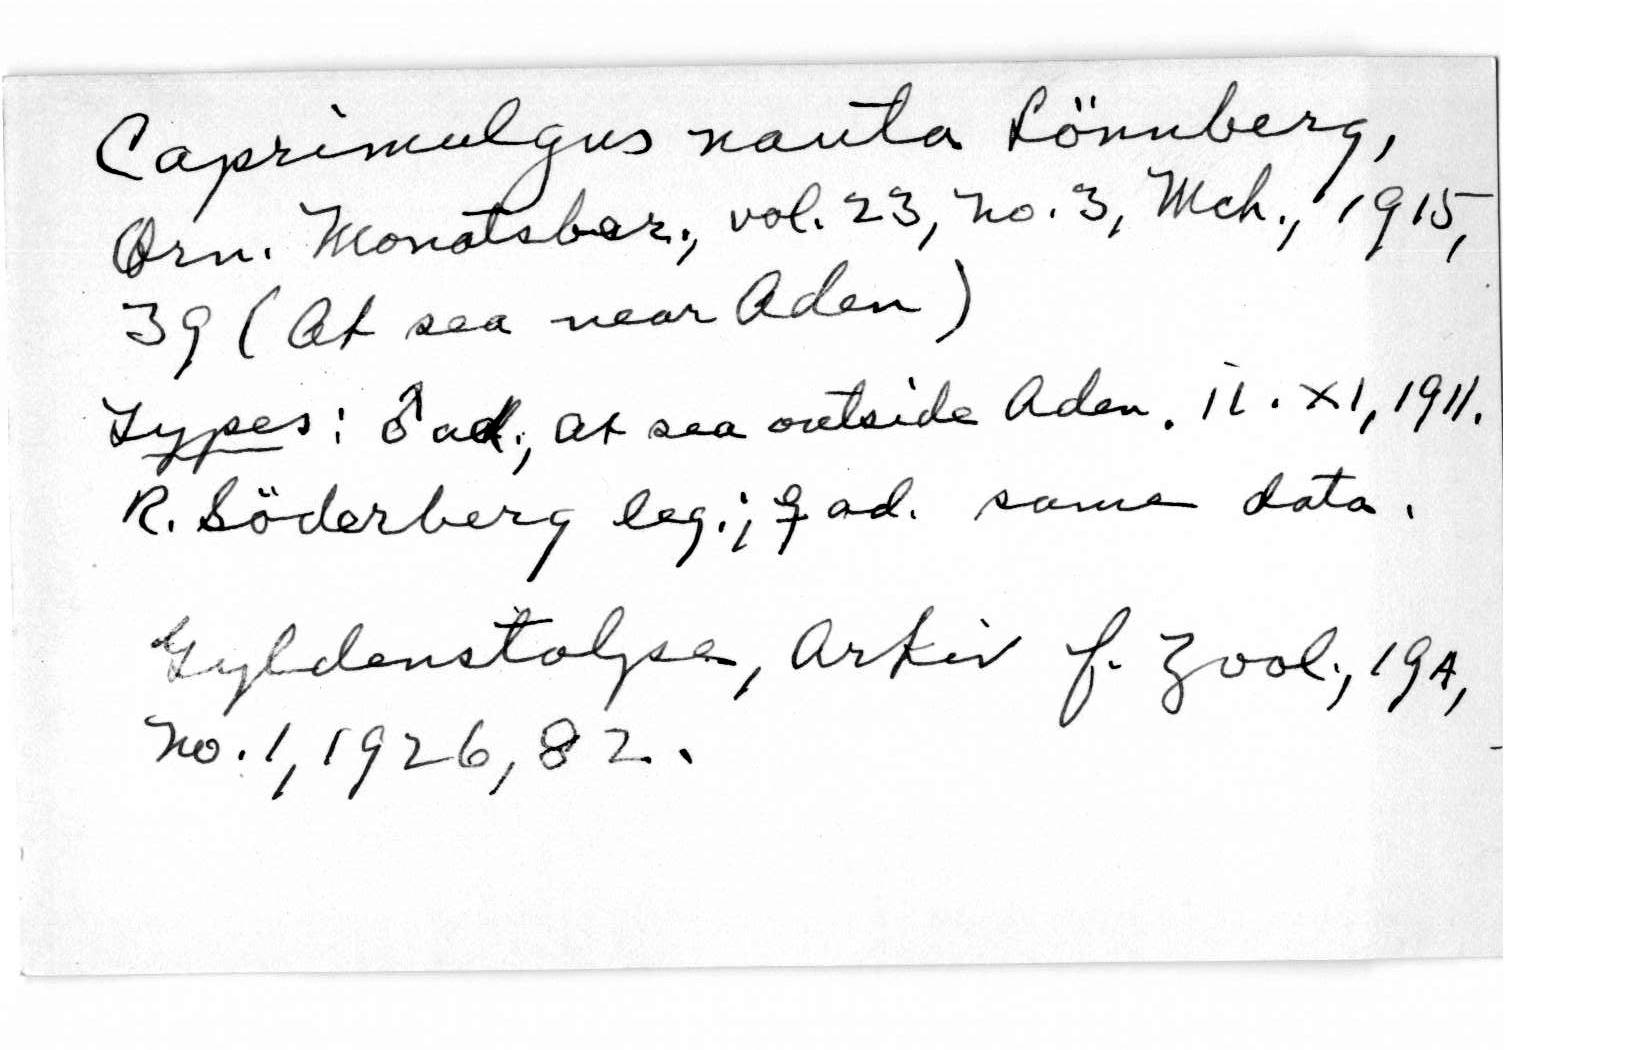 Caprimulgus nauta Lönnberg,
Orn. Monatsber., vol. 23, no. 3, Mch., 1915,
39 (At sea near Aden)
Types: ♂ ad., at sea outside Aden. 11. XI, 1911.
R. Söderberg leg.; ♀ ad. same data.
Gyldenstolpe, Arkiv f. Zool., 19A,
no. 1, 1926, 82.